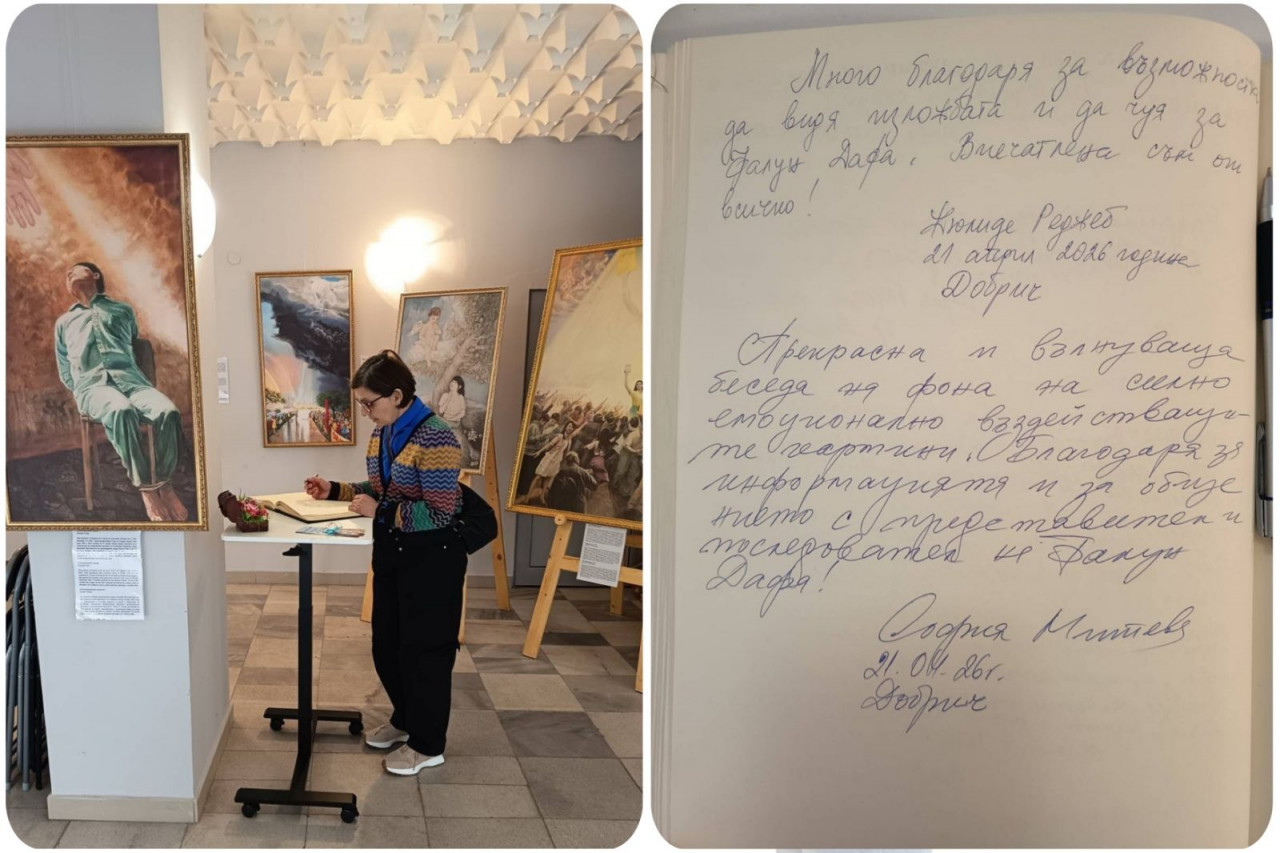 Много благодаря за възможността
да видя изложбата и да чуя за
Фалун Дафа. Впечатлена съм от
всичко!
Кюлиде Реджеб
21 април 2026 година
Добрич
Прекрасна и вълнуваща
беседа на фона на силно
емоционално въздействащи-
те картини. Благодаря за
информацията и за общу
нието с представители и
последователи на Фалун
Дафа!
София Митева
21.04.26г.
Добрич